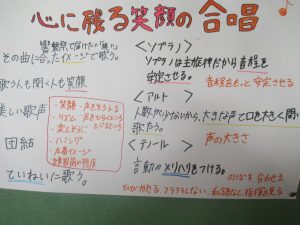 心に残る笑顔の合唱
響談祭で届けたい「願い」
その曲に合ったイメージで歌う。
歌う人も聞く人も笑顔
美しい歌声
団結
ていねいに歌う。
・笑顔・声をそろえる
・リズム
・楽しそうに
・ハミング
・本番イメージ
<ソプラノ>
ソプラノは主旋律だから音程を
安定させる。
音程をもっと安定させる
<アルト>
人数が少ないから、大きな声で口を大きく開い
歌おう。
<テノール>
声の大きさ
言動のメリハリをつける。
のばす、合わせる
ひびかせる、フラフラしない、私語なし、指揮見る